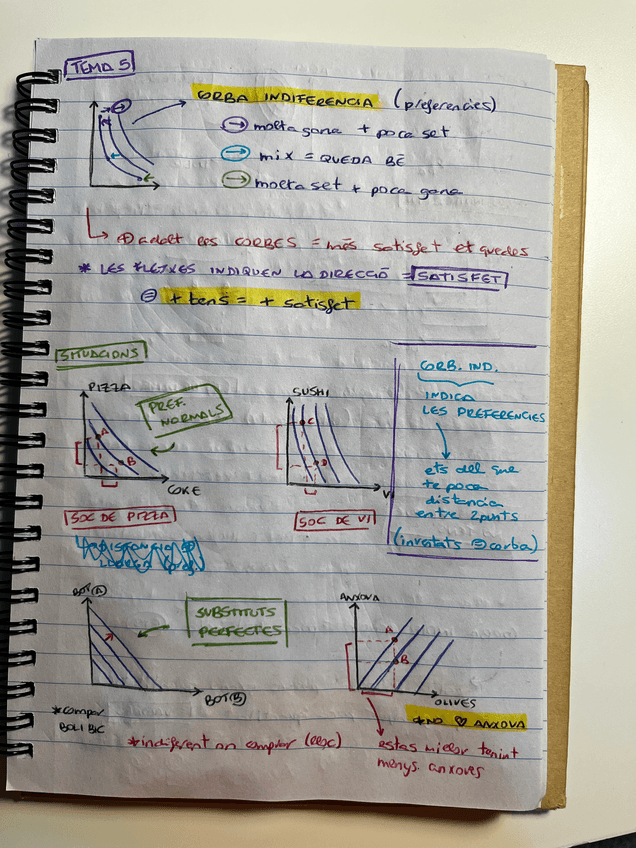 TEMA 5
CORBA INDIFERENCIA (preferencies)
→ molta gana + poca set
→ mix = QUEDA BÉ
→ molta set + poca gana
↳ adalt les CORBES = més satisfet et quedes
* LES FLETXES INDIQUEN LA DIRECCIÓ = SATISFET
+ bens = + satisfet
SITUACIONS
PIZZA
PREF.
NORMALS
A
B
COKE
SOC DE PIZZA
SUSHI
C
D
V
SOC DE VI
CORB. IND.
INDICA
LES PREFERENCIES
ets del que
te poca
distancia
entre 2 punts
(invertats corba)
BOT(A)
SUBSTITUTS
PERFECTES
BOT(B)
* compar
BOLI BIC
* indiferent on comprar (lloc)
ANXOVA
A
B
OLIVES
* NO ♡ ANXOVA
estas millor tenint
menys anxoves